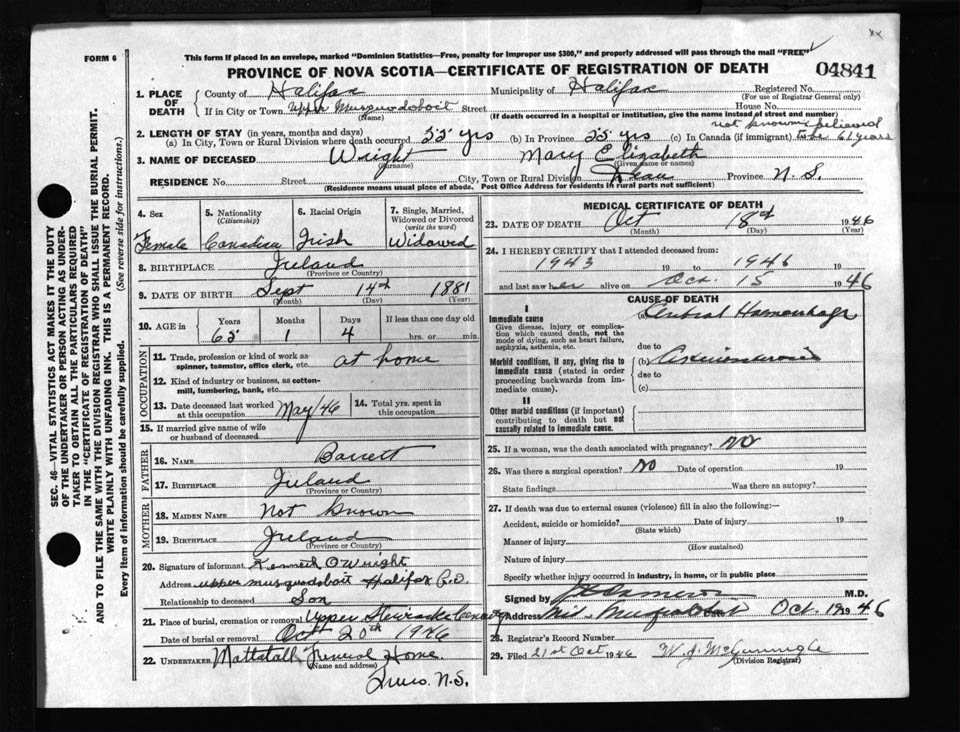 xx
FORM 6
This form if placed in an envelope, marked "Dominion Statistics—Free, penalty for improper use $300," and properly addressed will pass through the mail "FREE"
PROVINCE OF NOVA SCOTIA—CERTIFICATE OF REGISTRATION OF DEATH
04841
SEC. 46—VITAL STATISTICS ACT MAKES IT THE DUTY
OF THE UNDERTAKER OR PERSON ACTING AS UNDER-
TAKER TO OBTAIN ALL THE PARTICULARS REQUIRED
IN THE "CERTIFICATE OF REGISTRATION OF DEATH"
AND TO FILE THE SAME WITH THE DIVISION REGISTRAR WHO SHALL ISSUE THE BURIAL PERMIT.
WRITE PLAINLY WITH UNFADING INK. THIS IS A PERMANENT RECORD.
Every item of information should be carefully supplied. (See reverse side for instructions.)
1. PLACE OF DEATH County of Halifax Municipality of Halifax Registered No.
(For use of Registrar General only)
If in City or Town Upper Musquodoboit Street House No.
(Name) (If death occurred in a hospital or institution, give the name instead of street and number)
not known believed
2. LENGTH OF STAY (in years, months and days)
(a) In City, Town or Rural Division where death occurred 55 yrs (b) In Province 55 yrs (c) In Canada (if immigrant) to be 61 years
3. NAME OF DECEASED Wright Mary Elizabeth
(Surname) (Given name or names)
RESIDENCE No. Street City, Town or Rural Division Dean Province N. S.
(Residence means usual place of abode. Post Office Address for residents in rural parts not sufficient)
4. Sex Female
5. Nationality (Citizenship) Canadian
6. Racial Origin Irish
7. Single, Married, Widowed or Divorced (write the word) Widowed
8. BIRTHPLACE Ireland
(Province or Country)
9. DATE OF BIRTH Sept 14th 1881
(Month) (Day) (Year)
10. AGE in Years Months Days If less than one day old
65 1 4 hrs. or min.
OCCUPATION
11. Trade, profession or kind of work as spinner, teamster, office clerk, etc. at home
12. Kind of industry or business, as cotton-mill, lumbering, bank, etc.
13. Date deceased last worked at this occupation May/46
14. Total yrs. spent in this occupation
15. If married give name of wife or husband of deceased
FATHER
16. NAME Barrett
17. BIRTHPLACE Ireland
(Province or Country)
MOTHER
18. MAIDEN NAME Not Known
19. BIRTHPLACE Ireland
(Province or Country)
20. Signature of informant Kenneth O Wright
Address upper musquodoboit Halifax Co.
Relationship to deceased Son
21. Place of burial, cremation or removal Upper Stewiacke Cemetery
Date of burial or removal Oct 20th 1946
22. UNDERTAKER Mattatall Funeral Home
(Name and address)
Truro. N.S.
MEDICAL CERTIFICATE OF DEATH
23. DATE OF DEATH Oct 18th 1946
(Month) (Day) (Year)
24. I HEREBY CERTIFY that I attended deceased from:
1943 19 to 1946 19
and last saw her alive on Oct. 15 1946
CAUSE OF DEATH
I
Immediate cause
Give disease, injury or complication which caused death, not the mode of dying, such as heart failure, asphyxia, asthenia, etc.
(a) Cerebral Haemorrhage
due to
Morbid conditions, if any, giving rise to immediate cause (stated in order proceeding backwards from immediate cause).
(b) Arteriosclerosis
due to
(c)
II
Other morbid conditions (if important) contributing to death but not causally related to immediate cause.
25. If a woman, was the death associated with pregnancy? NO
26. Was there a surgical operation? No Date of operation 19
State findings Was there an autopsy?
27. If death was due to external causes (violence) fill in also the following:—
Accident, suicide or homicide? Date of injury 19
(State which)
Manner of injury
(How sustained)
Nature of injury
Specify whether injury occurred in industry, in home, or in public place
Signed by Cameron M.D.
Address Mid. Musquodoboit Date Oct. 19 1946
28. Registrar's Record Number
29. Filed 21st Oct 1946 W. J. McGunnigle
(Division Registrar)